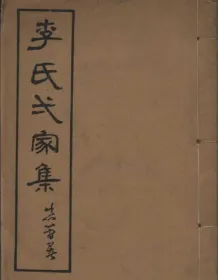 李氏弍家集